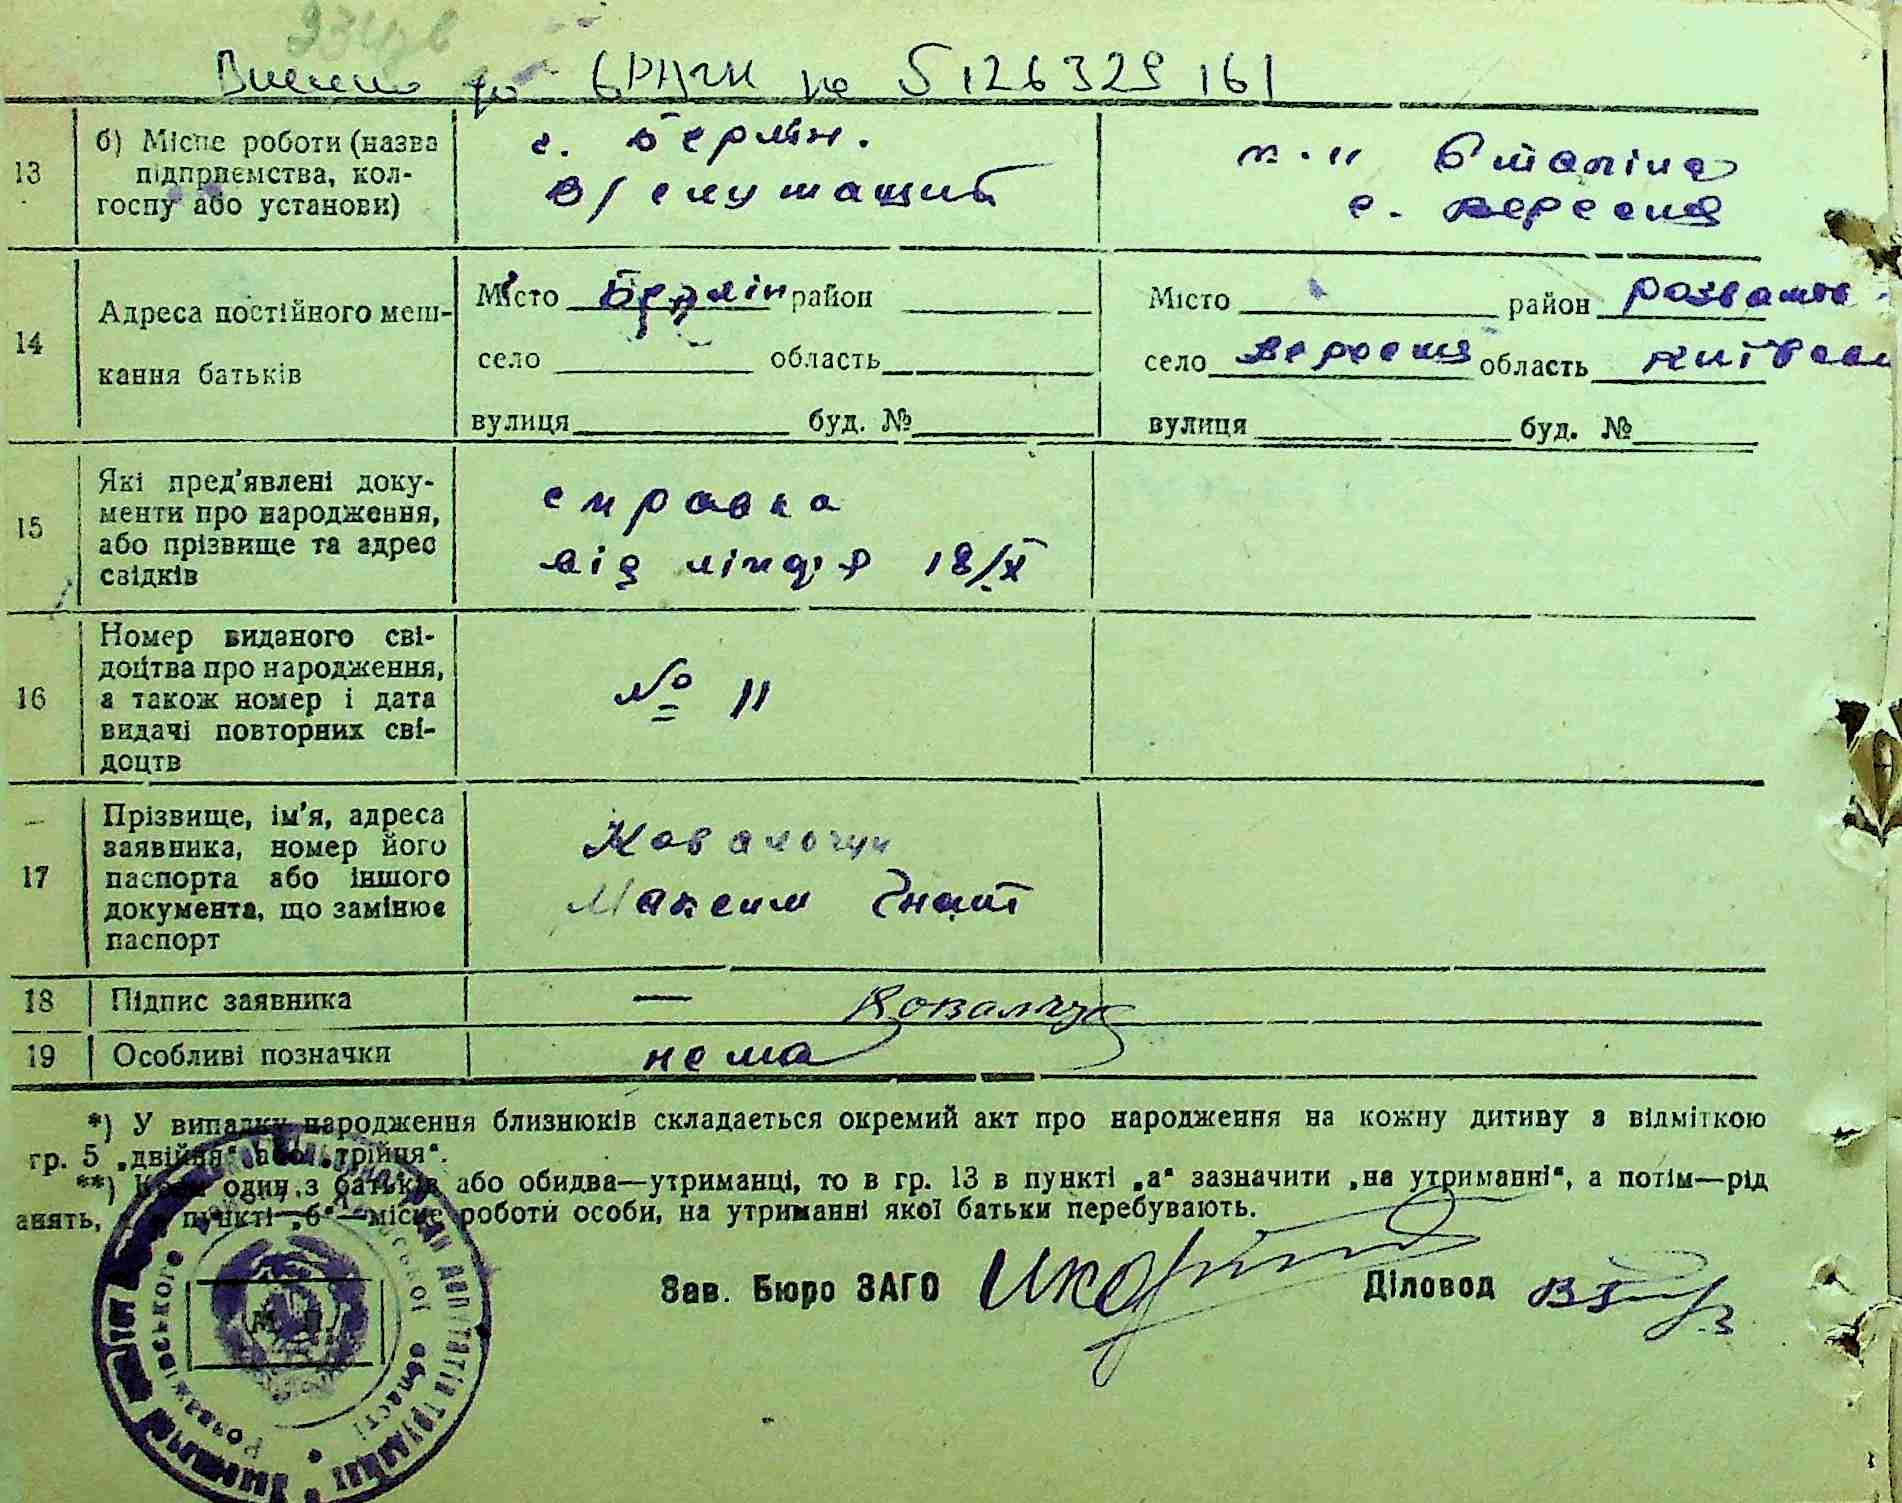 234цв
Внесено до ЄРАЧК на 5126329 161
13
б) Місце роботи (назва
підприємства, кол-
госпу або установи)
г. Берлін.
в/служащий
к-п Сталіна
с. Вересня
14
Адреса постійного меш-
кання батьків
Місто Берлін район
село область
вулиця буд. №
Місто район Розважів
село Вересня область Київськ
вулиця буд. №
15
Які пред'явлені доку-
менти про народження,
або прізвище та адрес
свідків
справка
від 18/X
16
Номер виданого сві-
доцтва про народження,
а також номер і дата
видачі повторних сві-
доцтв
№ 11
17
Прізвище, ім'я, адреса
заявника, номер його
паспорта або іншого
документа, що замінює
паспорт
Ковальчук
Максим Гнат
18 Підпис заявника — Ковальчук
19 Особливі позначки нема
*) У випадку народження близнюків складається окремий акт про народження на кожну дитину з відміткою
гр. 5 „двійня“ або „трійня“.
**) Коли один з батьків або обидва—утриманці, то в гр. 13 в пункті „а“ зазначити „на утриманні“, а потім—рід
анять, а в пункті „б“—місце роботи особи, на утриманні якої батьки перебувають.
Зав. Бюро ЗАГС Діловод
М. П.
депутатів трудящих
Розважівського
області